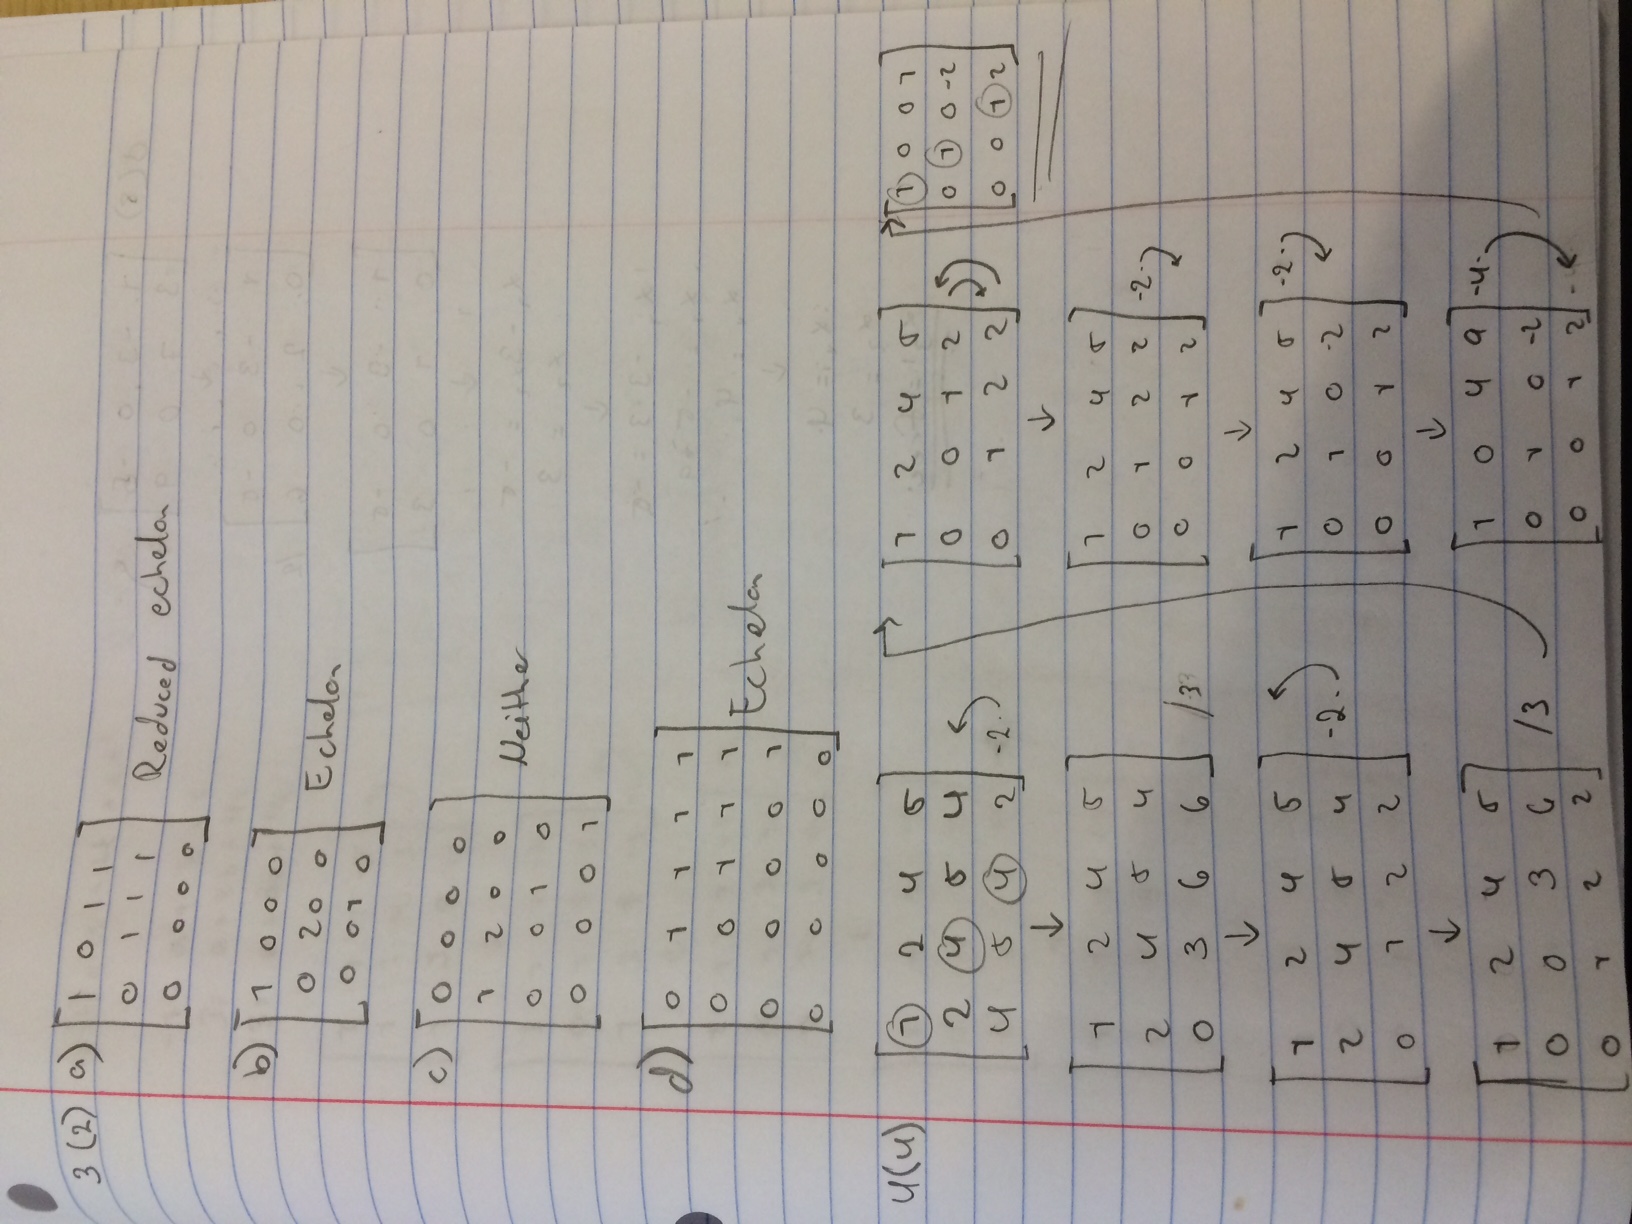 3(2) a) [1 0 1 1
0 1 1 1
0 0 0 0] Reduced echelon
b) [1 0 0 0
0 2 0 0
0 0 1 0] Echelon
c) [0 0 0 0
1 2 0 0
0 0 1 0
0 0 0 1] Neither
d) [0 1 1 1 1
0 0 1 1 1
0 0 0 0 1
0 0 0 0 0] Echelon
4(4) [1 2 4 5
2 4 5 4
4 5 4 2] -2·
↓
[1 2 4 5
2 4 5 4
0 3 6 6] /3
↓
[1 2 4 5
2 4 5 4
0 1 2 2] -2·
↓
[1 2 4 5
0 0 3 6
0 1 2 2] /3
→
[1 2 4 5
0 0 1 2
0 1 2 2]
↓
[1 2 4 5
0 1 2 2
0 0 1 2] -2·
↓
[1 2 4 5
0 1 0 -2
0 0 1 2] -2·
↓
[1 0 4 9
0 1 0 -2
0 0 1 2] -4·
→
[1 0 0 1
0 1 0 -2
0 0 1 2]